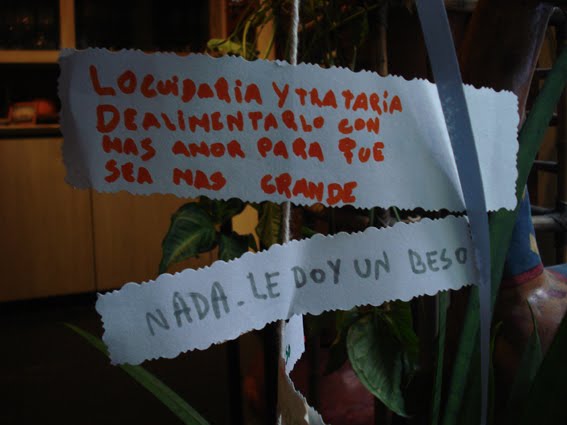 LOCUIDARIA Y TRATARIA
DE ALIMENTARLO CON
MAS AMOR PARA QUE
SEA MAS GRANDE
NADA. LE DOY UN BESO